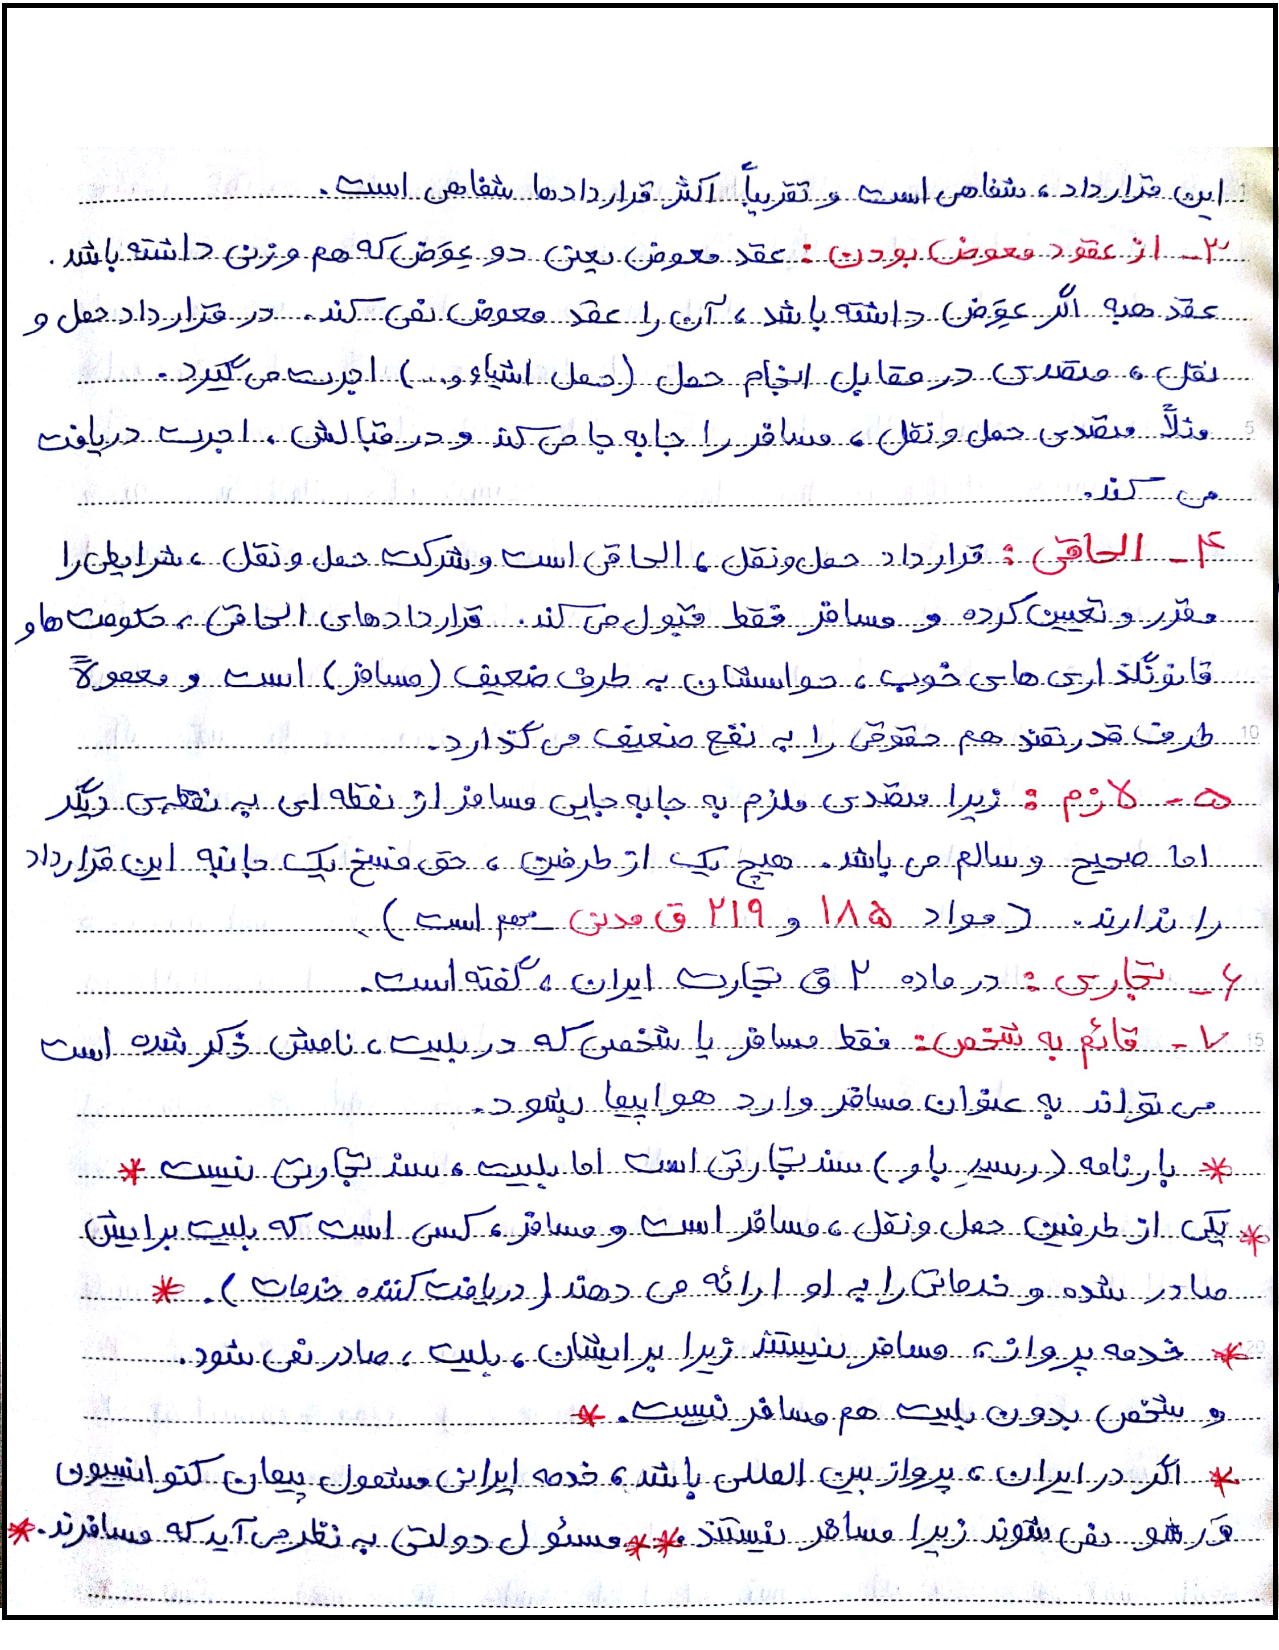 این قرارداد، شفاهی است و تقریباً اکثر قراردادها شفاهی است.
۳ـ از عقود معوض بودن : عقد معوض یعنی دو عِوَض که هم وزنی داشته باشد.
عقد هبه اگر عِوَض داشته باشد، آن را عقد معوض نفی کند. در قرارداد حمل و
نقل، متصدی در مقابل انجام حمل (حمل اشیاء و...) اجرت می گیرد.
5 مثلاً متصدی حمل و نقل، مسافر را جابه جا می کند و در قبالش، اجرت دریافت
می کند.
۴ـ الحاقی : قرارداد حمل و نقل، الحاقی است و شرکت حمل و نقل، شرایطی را
مقرر و تعیین کرده و مسافر فقط قبول می کند. قراردادهای الحاقی، حکومت ها و
قانونگذاری های خوب، حواسشان به طرف ضعیف (مسافر) است و معمولاً
10 طرف قدرتمند هم حقوقی را به نفع ضعیف می گذارد.
۵ـ لازم : زیرا متصدی ملزم به جابه جایی مسافر از نقطه ای به نقطه ی دیگر
اما صحیح و سالم می باشد. هیچ یک از طرفین، حق فسخ یک جانبه این قرارداد
را ندارند. (مواد ۱۸۵ و ۲۱۹ ق مدنی مهم است)
۶ـ تجاری : در ماده ۲ ق تجارت ایران، گفته است.
15 ۷ـ قائم به شخص : فقط مسافر یا شخصی که در بلیت، نامش ذکر شده است
می تواند به عنوان مسافر وارد هواپیما بشود.
* بارنامه (رسیدِ بار) سند تجارتی است اما بلیت، سند تجارتی نیست *
* یکی از طرفین حمل و نقل، مسافر است و مسافر، کسی است که بلیت برایش
صادر شده و خدماتی را به او ارائه می دهند (دریافت کننده خدمات). *
20 * خدمه پرواز، مسافر نیستند زیرا برایشان، بلیت، صادر نمی شود.
و شخص بدون بلیت هم مسافر نیست. *
* اگر در ایران، پرواز بین المللی باشد، خدمه ایرانی مشمول پیمان کنوانسیون
ورشو نمی شوند زیرا مسافر نیستند. ** مسئول دولتی به نظر می آید که مسافرند. *